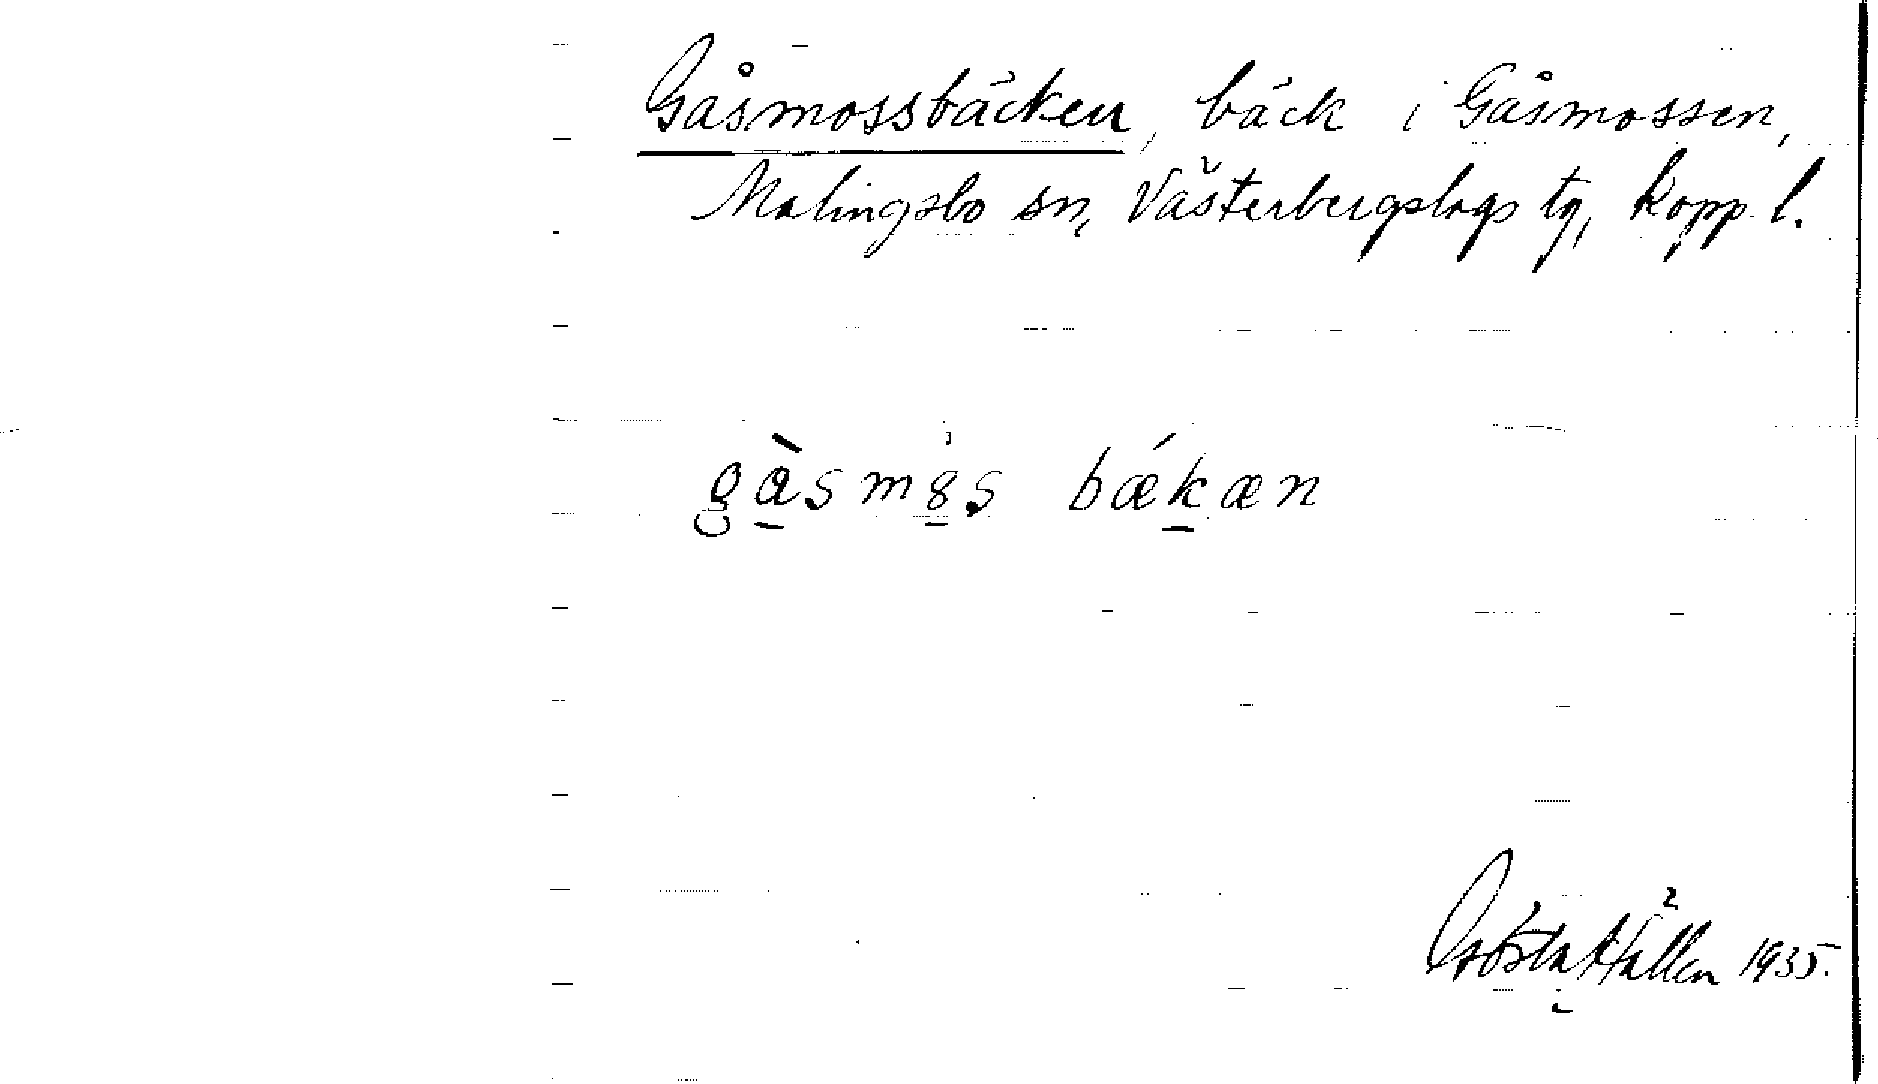 Gåsmossbäcken, bäck i Gåsmossen,
Malingsbo sn, Västerbergslags tg, Kopp. l.
gàsmo̱s bækæn
Gösta Hällen 1935.